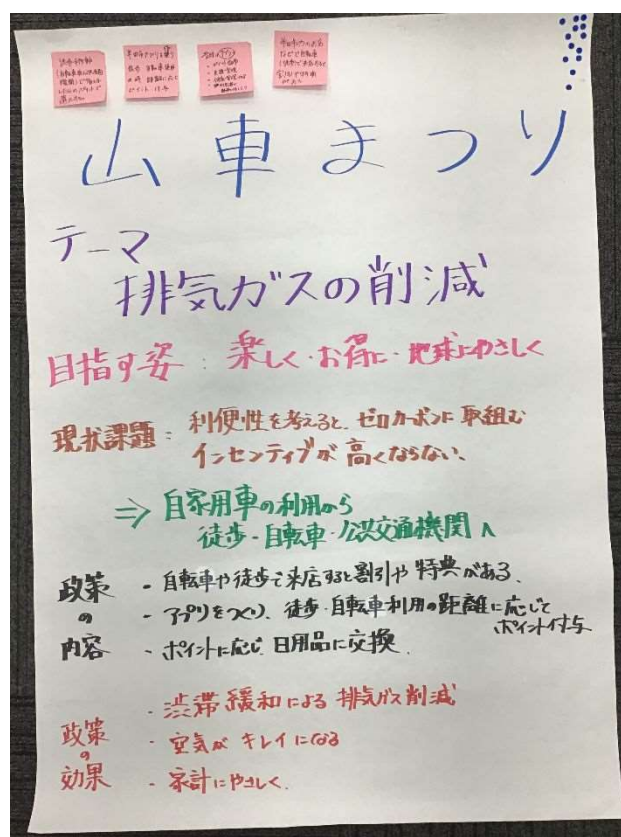 山車まつり
テーマ
排気ガスの削減
目指す姿：楽しく・お得に・地球にやさしく
現状課題：利便性を考えると、ゼロカーボンに取組む
インセンティブが高くならない、
⇒ 自家用車の利用から
徒歩・自転車・公共交通機関へ
政策の内容
・自転車や徒歩で来店すると割引や特典がある。
・アプリをつくり、徒歩・自転車利用の距離に応じて
ポイント付与
・ポイントに応じ日用品に交換
政策の効果
・渋滞緩和による排気ガス削減
・空気がキレイになる
・家計にやさしく